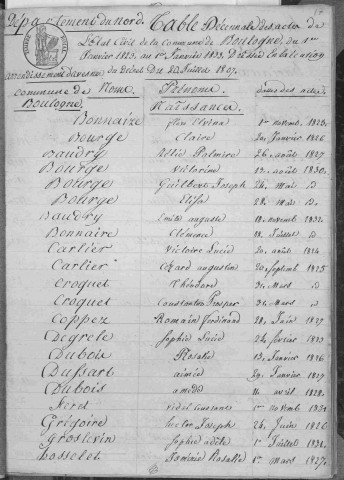 Département du Nord. Table Décennale des actes de
L'Etat Civil de la Commune de Boulogne, du 1er
Janvier 1823 au 1er Janvier 1833. Dressée en exécution
Arrondissement d'avesnes du Décret Du 20 Juillet 1807.
Commune de Boulogne. Noms Prénoms dates des actes
Naissances
Bonnaire 1er novemb. 1825
Bourge Claire 20 Janvier 1826
Baudry Palmire 26 août 1827
Bourge Victorine 13 août 1830
Bourge Guilbert Joseph 24 mai D
Bourge Elisa 28 mai D
Baudry auguste 18 novembre 1832
Bonnaire Clémence 18 Juillet D
Carlier Victoire Lucie 20 août 1824
Carlier augustin 20 Septemb 1825
Croquet Théodore 31 Mars D
Croquet Constantin Prosper 31 Mars D
Coppez Romain Ferdinand 28 Juin 1827
Degrele Sophie Lucie 24 février 1823
Dubois Rosalie 13 Janvier 1826
Dussart aimée 29 Janvier 1827
Dubois amédé 16 avril 1828
Ferd constant 1er novemb 1831
Grégoire Victor Joseph 24 Juin 1826
Groslevin Sophie adèle 1er Juillet 1832
hosselet Rosalie 1er mars 1827